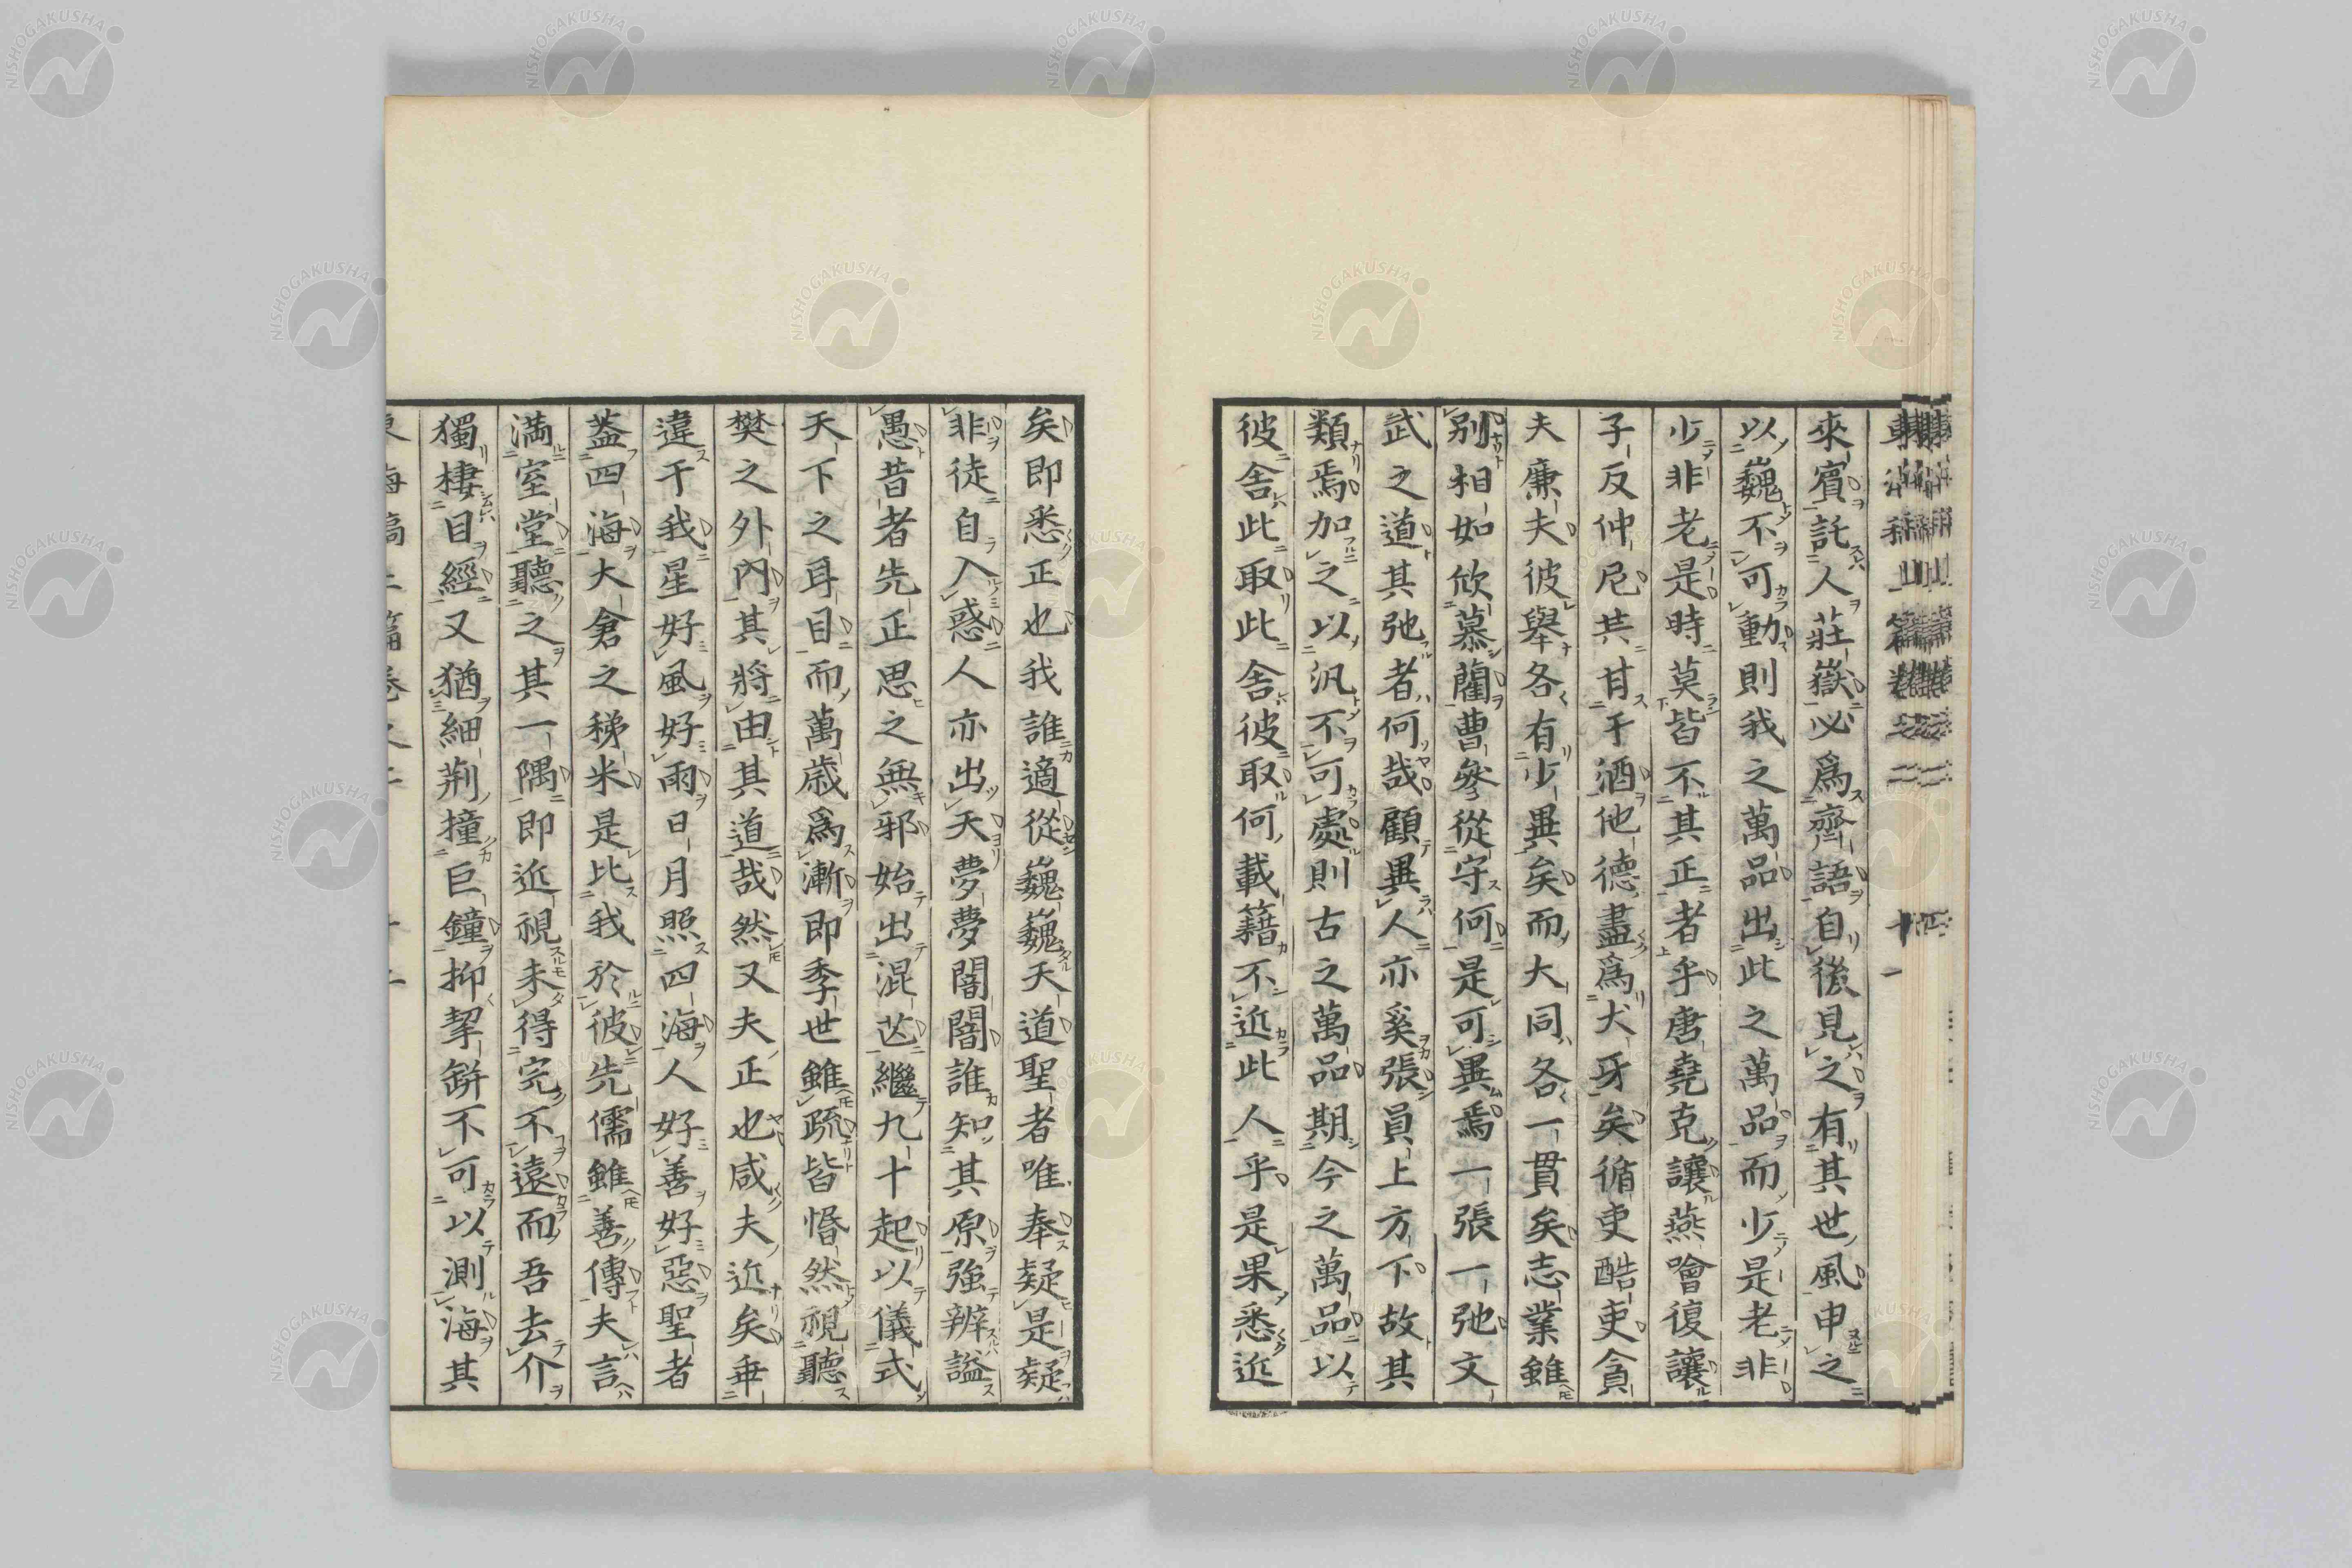 來賓託人莊嶽必爲齊語自後見之有其世風申之
以巍不可動則我之萬品出此之萬品而少是老非
少非老是時莫皆不其正者乎唐堯克讓燕噲復讓
子反仲尼共甘于酒他德盡爲犬牙矣循吏酷吏貪
夫廉夫彼舉各有少異矣而大同各一貫矣志業雖
別相如欣慕藺曹參從守何是可異焉一張一弛文
武之道其弛者何哉顧異人亦奚張員上方下故其
類焉加之以汎不可處則古之萬品期今之萬品以
彼舍此取此舍彼取何載籍不近此人乎是果悉近
矣即悉正也我誰適從巍巍天道聖者唯奉疑是疑
非徒自入惑人亦出天夢夢闇闇誰知其原強辨謚
愚昔者先正思之無邪始出混芒繼九十起以儀式
天下之耳目而萬歲爲漸即季世雖疏皆惛然視聽
樊之外內其將由其道哉然又夫正也咸夫近矣垂
違于我星好風好雨日月照四海人好善好惡聖者
蓋四海大倉之稊米是比我於彼先儒雖善傳夫言
滿室堂聽之其一隅即近視未得完不遠而吾去介
獨棲目經又猶細荊撞巨鐘抑挈缾不可以測海其
NISHOGAKUSHA